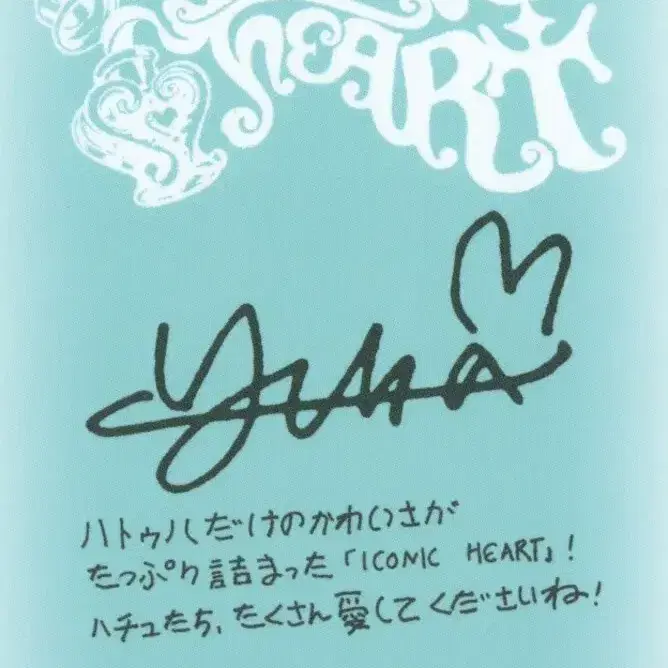 HEART
yuha
ハトゥハだけのかわいさが
たっぷり詰まった「ICONIC HEART」!
ハチュたち、たくさん愛してくださいね!